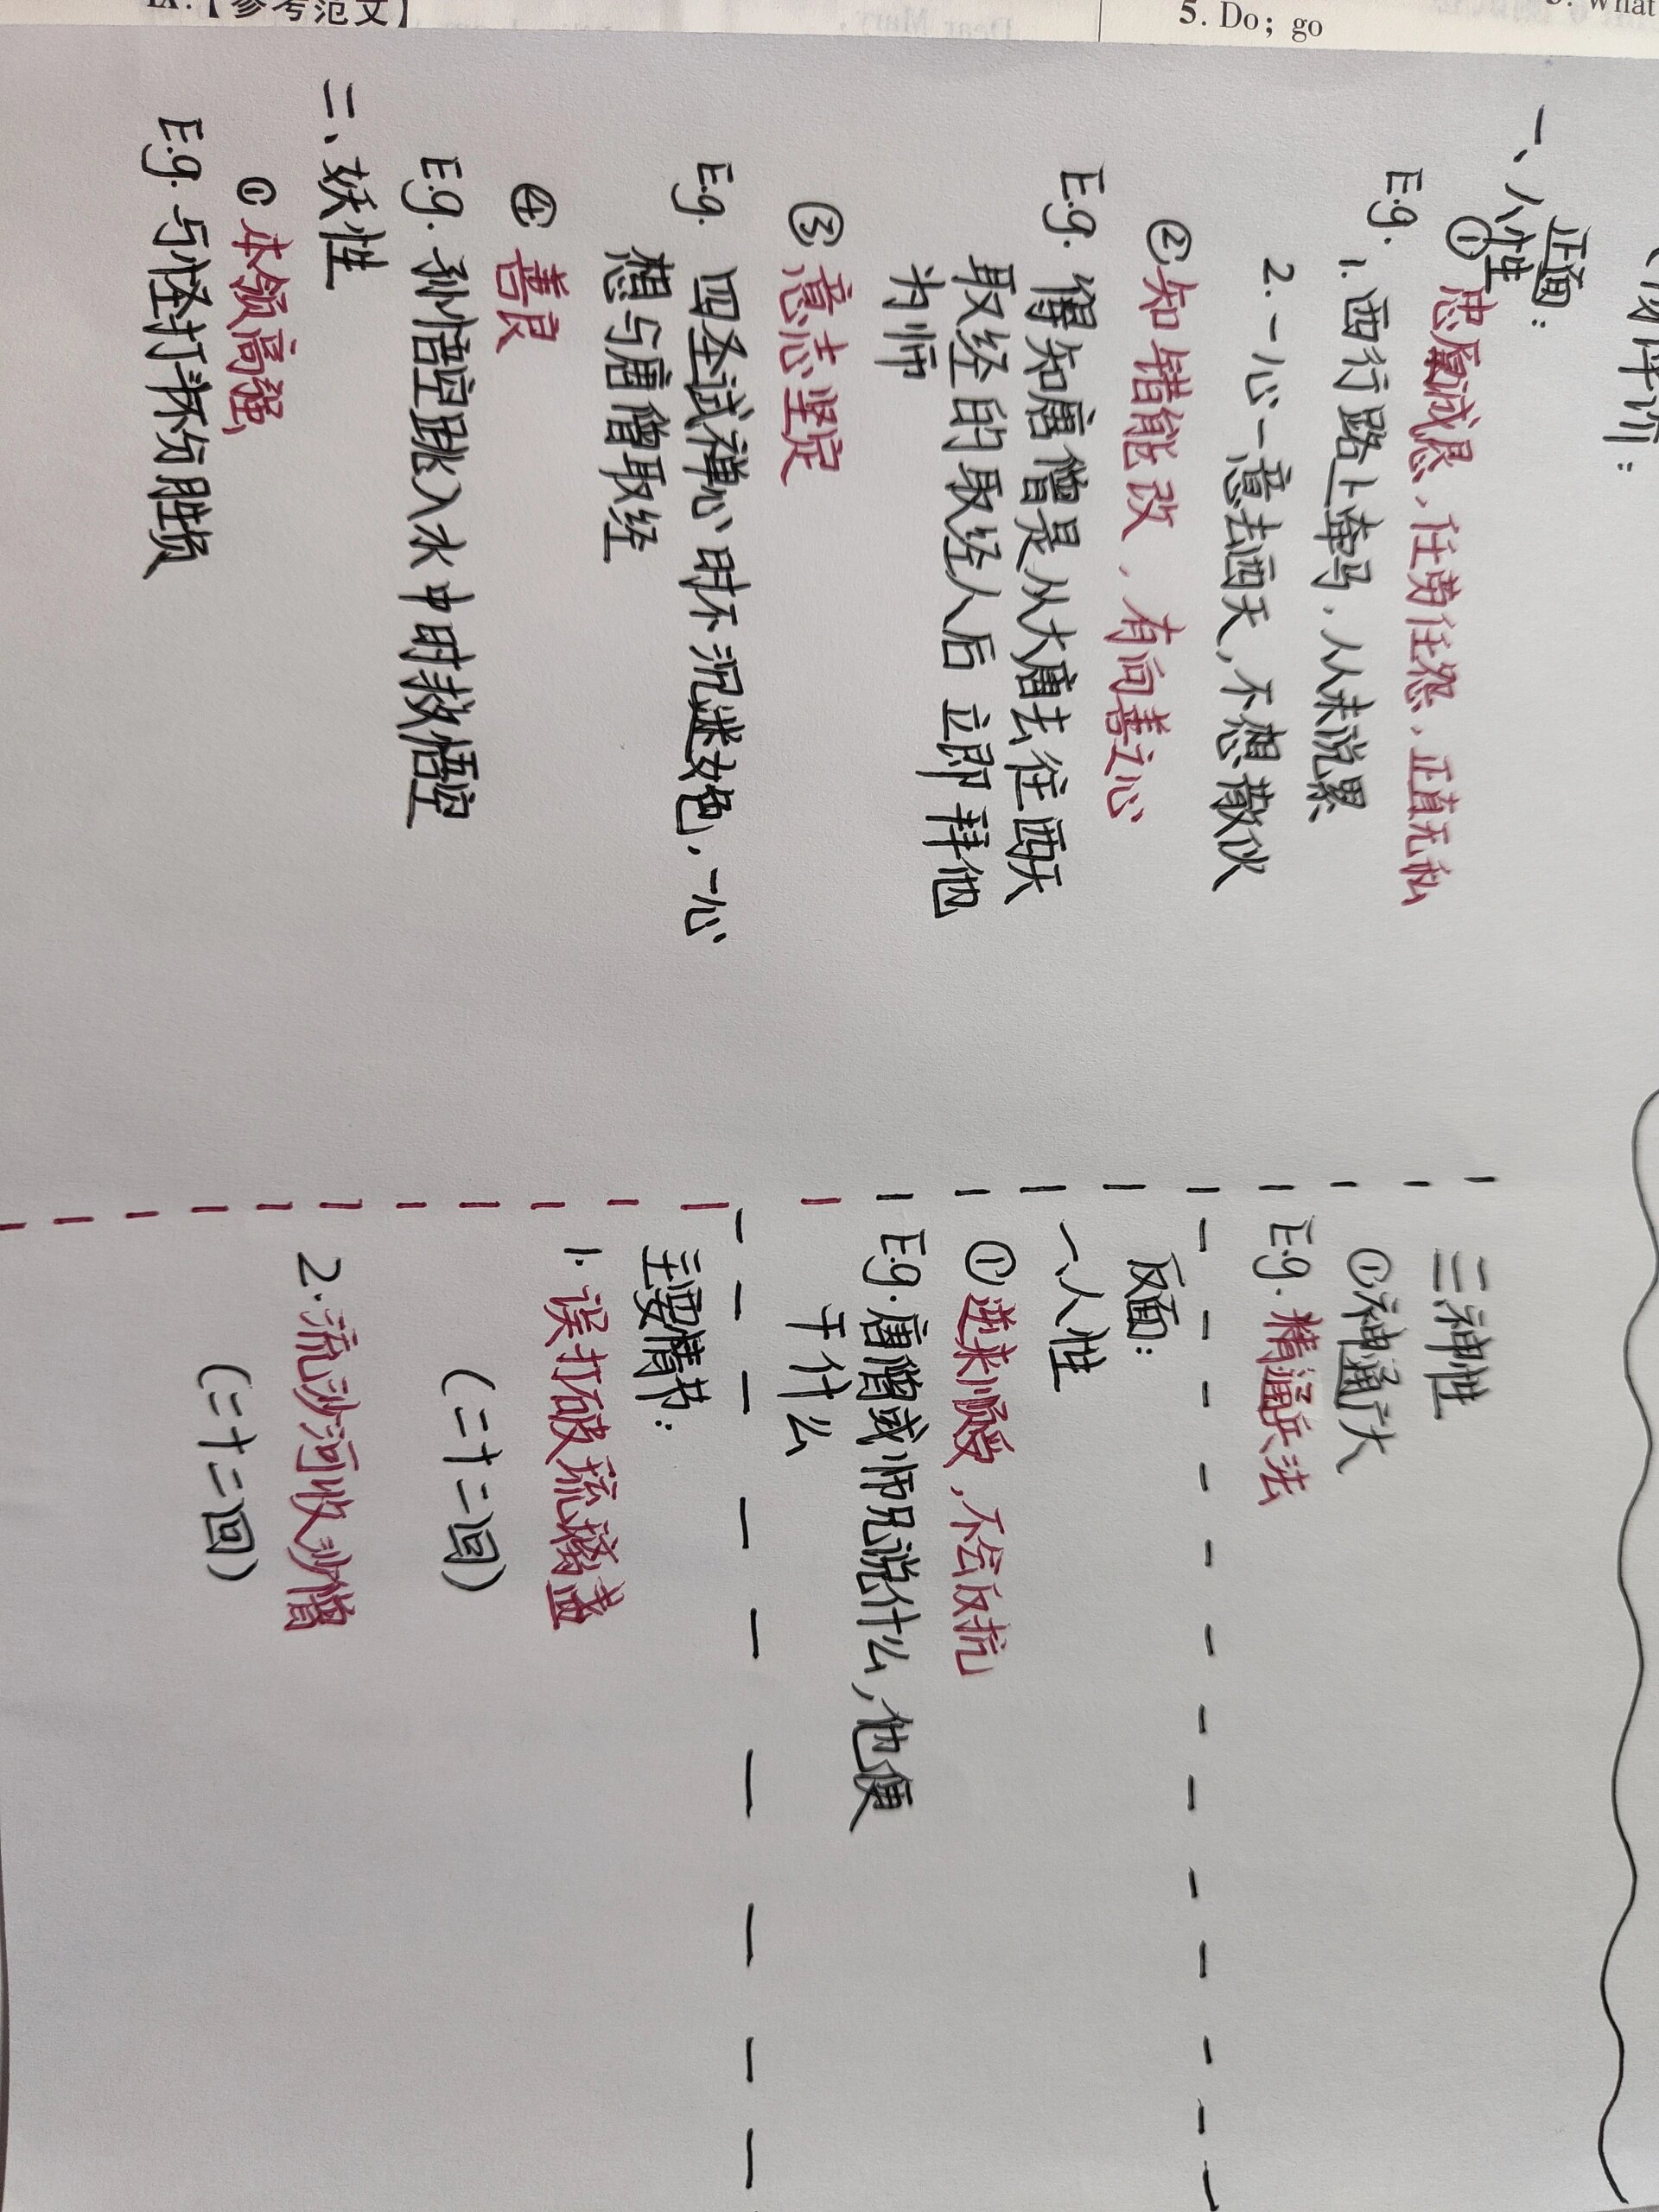 IX.【参考范文】
5. Do; go
What
正面:
一、人性
①忠厚诚恳、任劳任怨、正直无私
E.g. 1.西行路上牵马,从未说累
2.一心一意去西天,不想散伙
②知错能改,有向善之心
E.g. 得知唐僧是从大唐去往西天
取经的取经人后立即拜他
为师
③意志坚定
E.g. 四圣试禅心时不沉迷女色,一心
想与唐僧取经
④善良
E.g. 孙悟空跳入水中时救悟空
二、妖性
①本领高强
E.g. 与怪打不分胜负
三神性
①神通广大
E.g. 精通兵法
反面:
一、人性
①逆来顺受,不会反抗
E.g. 唐僧或师兄说什么,他便
干什么
主要情节:
1. 误打破琉璃盏
(二十二回)
2. 流沙河收沙僧
(二十二回)